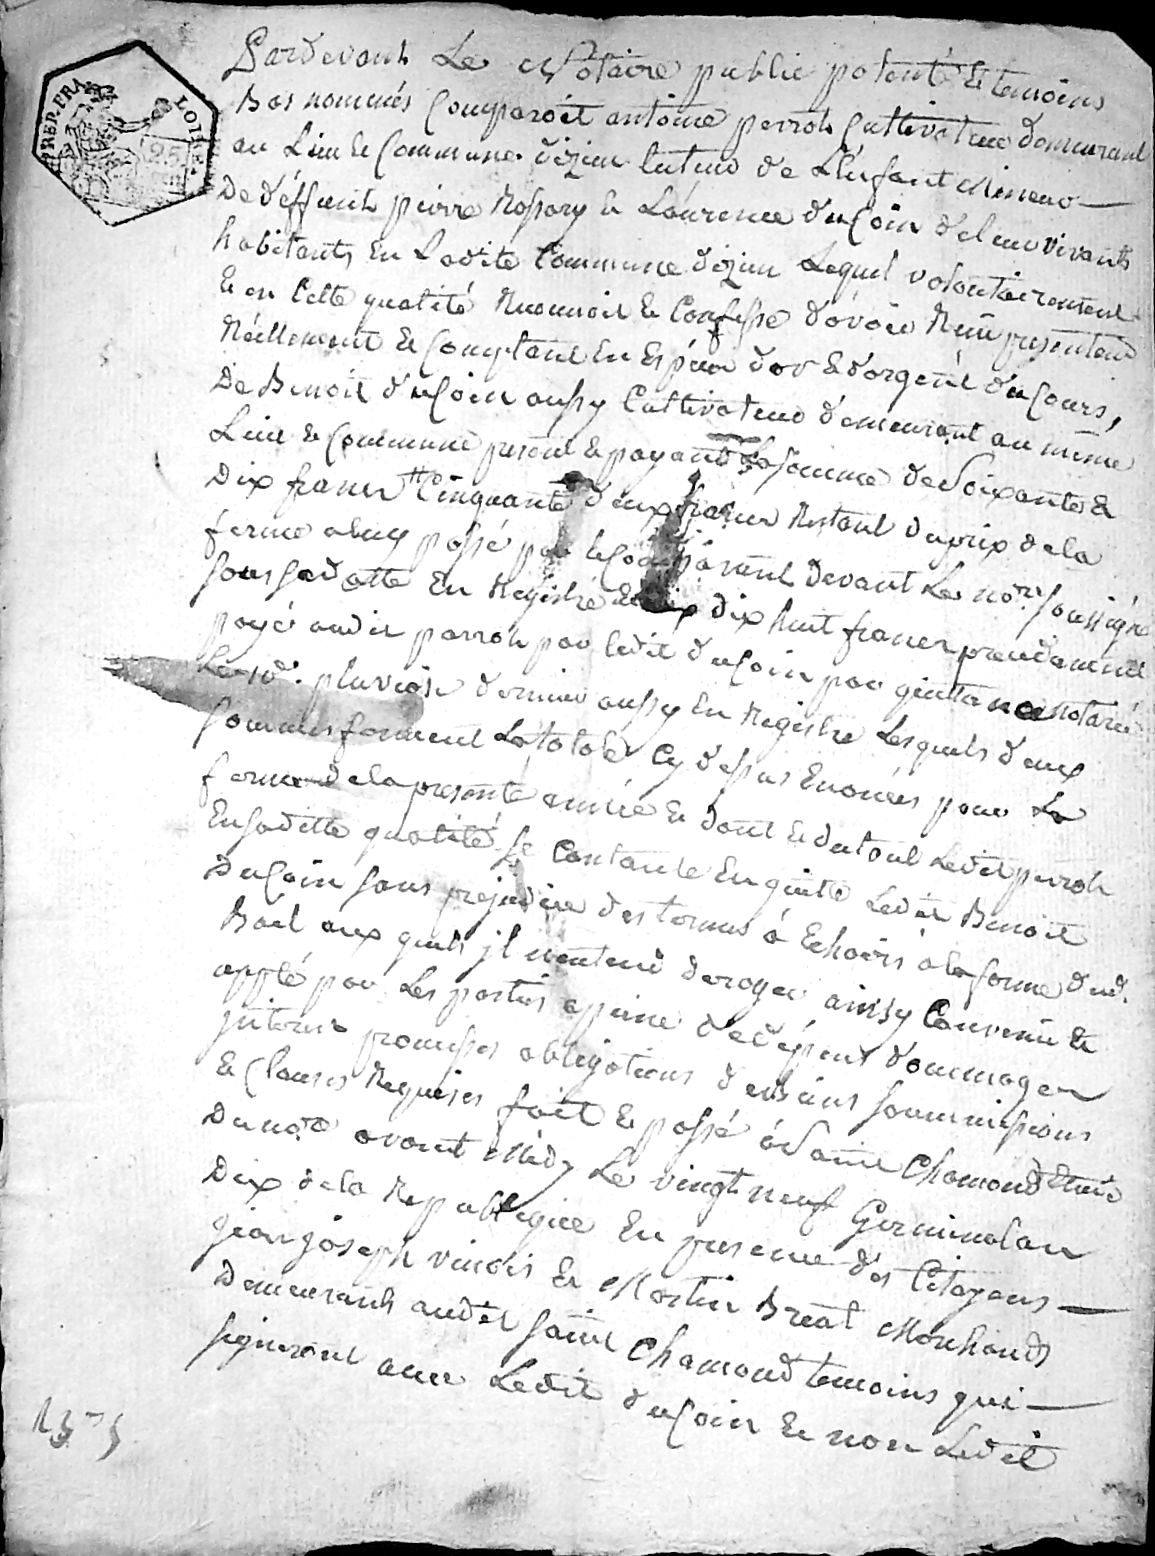 REP. FRA. LOIRE
25
Pardevant Le Notaire public patenté & temoins
Bas nommés Comparoit antoine perroh Cultivateur demeurant
au Lieu & Commune dizieu tuteur de L'Enfant Mineur
De déffunts pierre & Laurence duCoin d'eleur vivants
habitants En Ladite Commune dizieu Lequel volontairement
& en Cette qualité Reconnoit & Confesse d'avoir presentem.
Réellement & Comptant En Espece d'or & d'argent du Cours,
De Benoit duCoin aussy Cultivateur demeurant au même
Lieu & Commune present & payant La somme de Soixante &
Dix francs Cinquante deux francs Restant du prix de la
ferme passé par le Comparant devant Le no.re soussigné
sous sa datte En Registré & dix huit francs
payé audit perroh par ledit duCoin par quittance notariée
Le 10e. pluviose dernier aussy En Registré Lesquels deux
sommes forment La totale Cy dessus Enoncés pour La
ferme de la presente année & dont & du tout Ledit perroh
En sadette qualité Se Contante En quitte Ledit Benoit
DuCoin sans prejudice des termes à Echoirs a la forme dud.
Bail aux quels jl n'entend deroger ainsy Convenu &
par Les parties a peine de dépens dommages
jnterets promesses obligations de biens soummissions
& Clauses Requises fait & passé à Saint Chamond Etude
Du no.re avant Midy Le vingt neuf Germinal an
Dix de la Republique En presence des Citoyens
jean joseph & Martin Marchands
Demeurants audit saint Chamond temoins qui
signeront avec Ledit duCoin & non Ledit